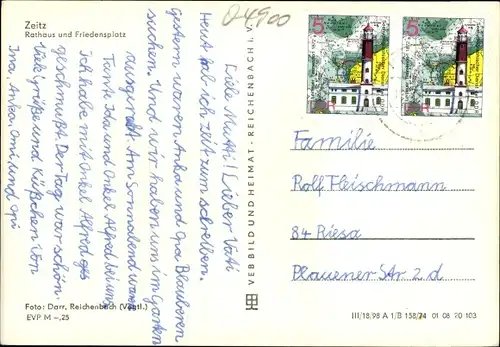 Zeitz
Rathaus und Friedensplatz
04900
Liebe Mutti! Lieber Vati
Heut hab ich Zeit zum schreiben.
Gestern waren Anka und Ina Blaubeeren
suchen. Und wir haben uns im Garten
ausgeruht. Am Sonnabend waren
Tante Ida und Onkel Alfred bei uns
ich habe mit Onkel Alfred
geschmußt. Der Tag war schön.
Viele Grüße und Küßchen von
Ina, Anka Omi und Opi
Foto: Darr, Reichenbach (Vogtl.)
EVP M –,25
VEB BILD UND HEIMAT · REICHENBACH i. V.
5
5
Familie
Rolf Fleischmann
84 Riesa
Plauener Str 2 d
III/18/98 A 1/B 158/74 01 08 20 103